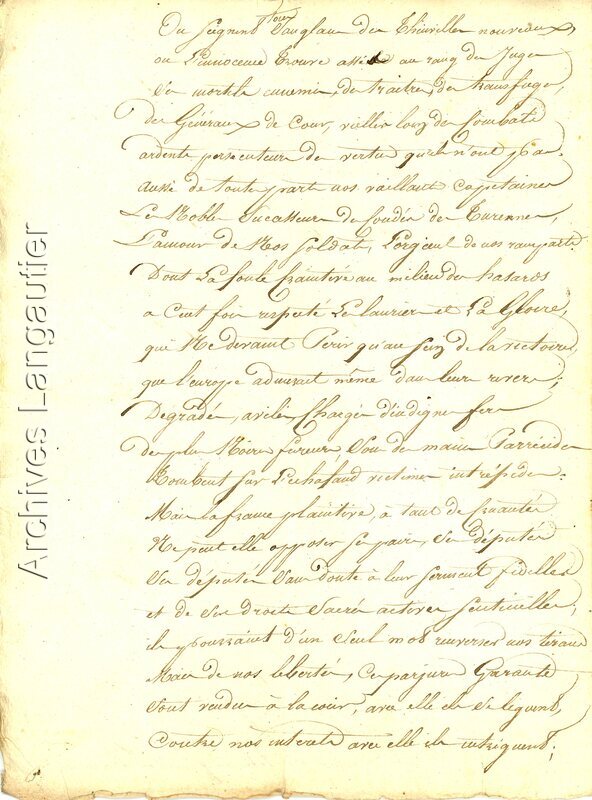 Du Seignens Tous Sanglans des Thinvilles nouveaux
ou L'innocence trouve assis au rang des Juges
Ses mortels ennemis, des traitres, des transfuges,
des Généraux de Cour, vieillis loin des Combats
ardents persecuteurs des vertus qu'ils n'ont pas.
aussi de toute part nos vaillants Cappitaines
Les Nobles Successeurs des Condés des Turennes,
L'amour de Nos Soldats, l'orgueil de nos remparts
Dont la foule craintive au milieu des hasards
a Cent fois respecté Le laurier et La Gloire,
qui Ne devaient Périr qu'au sein de la victoire,
que l'europe admirait même dans leurs revers;
Dégradés, avilis, Chargés d'indignes fers
des plus Noires fureurs, Sous des mains Parricides
tombent sur l'echafaud victimes intrépides.
Mais la france plaintive, à tant de cruautés
Ne peut elle opposer ses pairs, Ses députés
Ses députés Sans doute à leurs serments fidelles
et de Ses droits Sacrés actives Sentinelles,
ils pourraient d'un Seul mot renverser nos tirans
Mais de nos libertés, Ces parjures Garants
Sont vendus à la cour, avec elle ils Se liguent,
Contre nos interets avec elle ils intriguent;
Archives Langautier